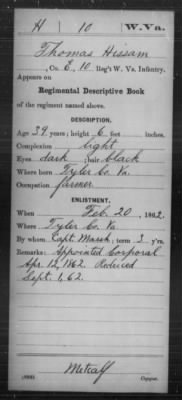 H 10 W.Va.
Thomas Hissam
, Co. E, 10 Reg't W. Va. Infantry.
Appears on
Regimental Descriptive Book
of the regiment named above.
DESCRIPTION.
Age 39 years; height 6 feet inches.
Complexion light
Eyes dark ; hair black
Where born Tyler Co. Va.
Occupation farmer
ENLISTMENT.
When Feb. 20 , 1862.
Where Tyler Co. Va
By whom Capt. Marsh ; term 3 y'rs.
Remarks: Appointed Corporal
Apr. 12, 1862. Reduced
Sept. 1, 62.
Metcalf
Copyist.